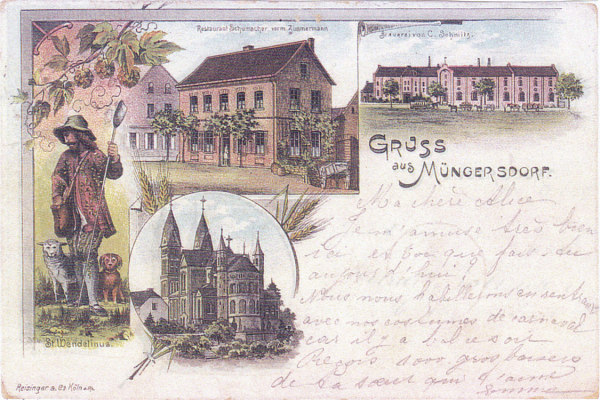 Restaurant Schumacher vorm. Zimmermann
Brauerei von C. Schmitz.
GRUSS
aus MÜNGERSDORF.
Ma chère Alice
Je m'amuse très bien
ici et toi que fais-tu
aujourd'hui
Nous nous habillerons
avec nos costumes de carneval
car il y a
Reçois 1000 gros baisers
de ta sœur qui t'aime
Emma
St. Wendelinus.
Reisinger a. Co. Köln a/R.